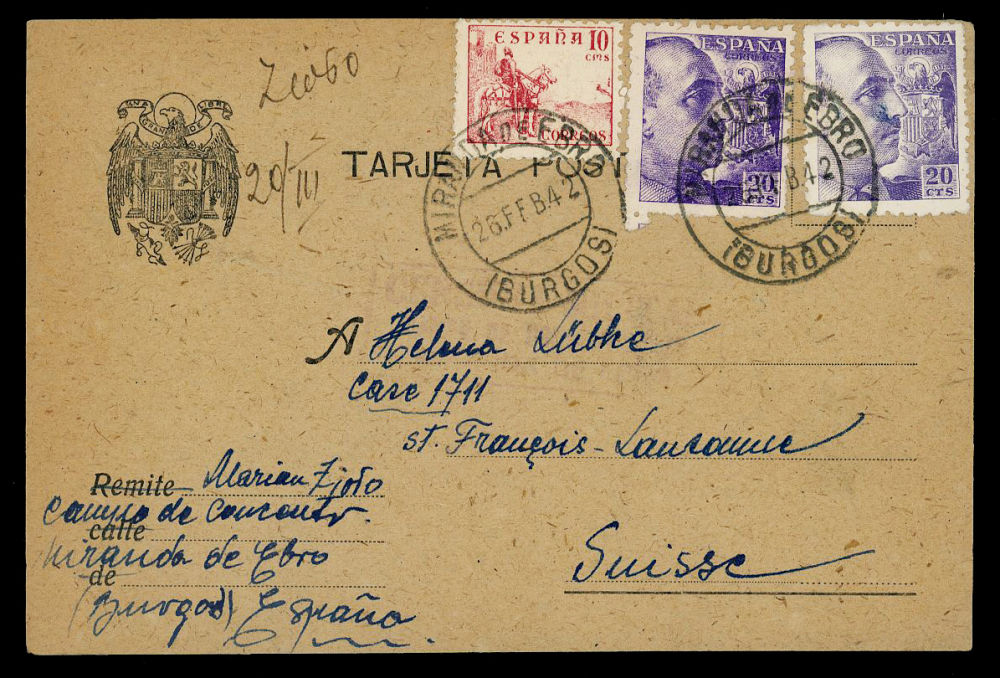 Zioło
20/III
UNA GRANDE LIBRE
ESPAÑA 10
cts
CORREOS
ESPAÑA
CORREOS
20
CTS
ESPAÑA
CORREOS
20
CTS
TARJETA POST
MIRANDA DE EBRO
26.FEB.42
(BURGOS)
MIRANDA DE EBRO
FEB.42
(BURGOS)
A Helena Lübke
Case 1711
st. François - Lausanne
Suisse
Remite Marian Zioło
Campo de Concentr.
calle
Miranda de Ebro
de
(Burgos) España